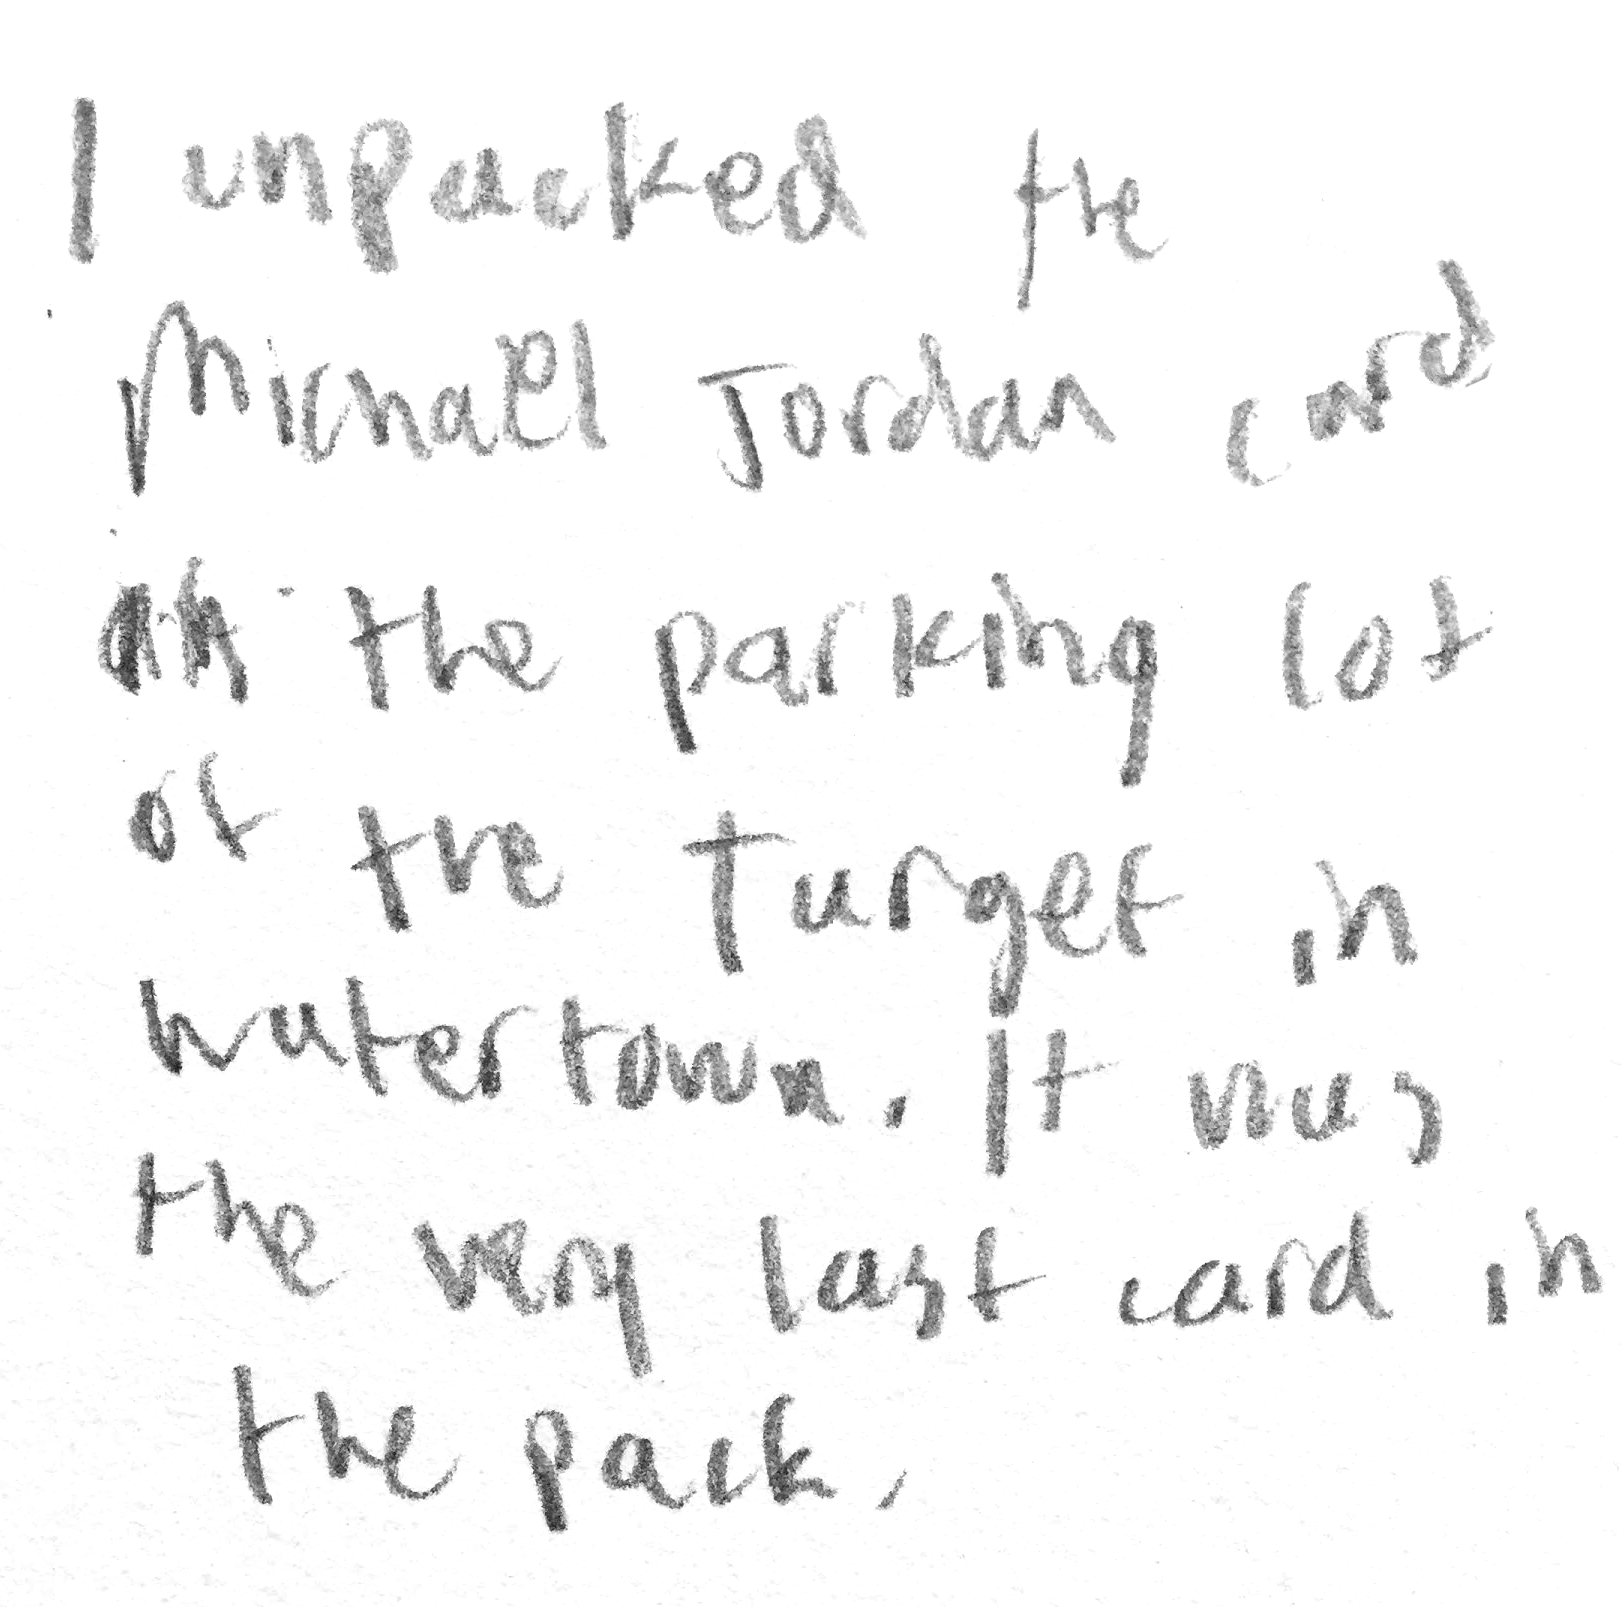 I unpacked the
Michael Jordan card
the parking lot
of the Target in
watertown. It was
the very last card in
the pack.